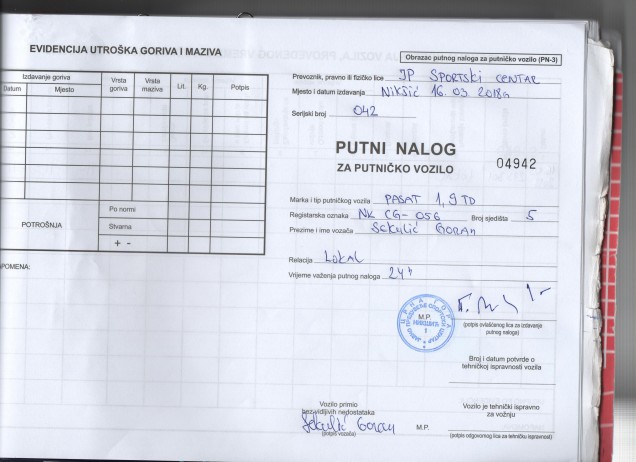 EVIDENCIJA UTROŠKA GORIVA I MAZIVA
Izdavanje goriva
Datum
Mjesto
Vrsta goriva
Vrsta maziva
Lit.
Kg.
Potpis
POTROŠNJA
Po normi
Stvarna
+ -
APOMENA:
Obrazac putnog naloga za putničko vozilo (PN-3)
Prevoznik, pravno ili fizičko lice JP SPORTSKI CENTAR
Mjesto i datum izdavanja Nikšić 16.03.2018g
Serijski broj 042
PUTNI NALOG
ZA PUTNIČKO VOZILO
04942
Marka i tip putničkog vozila PASAT 1,9 TD
Registarska oznaka NK CG-056 Broj sjedišta 5
Prezime i ime vozača Sekulić GORAN
Relacija LOKAL
Vrijeme važenja putnog naloga 24h
M.P.
(potpis ovlašćenog lica za izdavanje
putnog naloga)
Broj i datum potvrde o
tehničkoj ispravnosti vozila
Vozilo primio
bez vidljivih nedostataka
Sekulić Goran
(potpis vozača)
M.P.
Vozilo je tehnički ispravno
za vožnju
(potpis odgovornog lica za tehničku ispravnost)